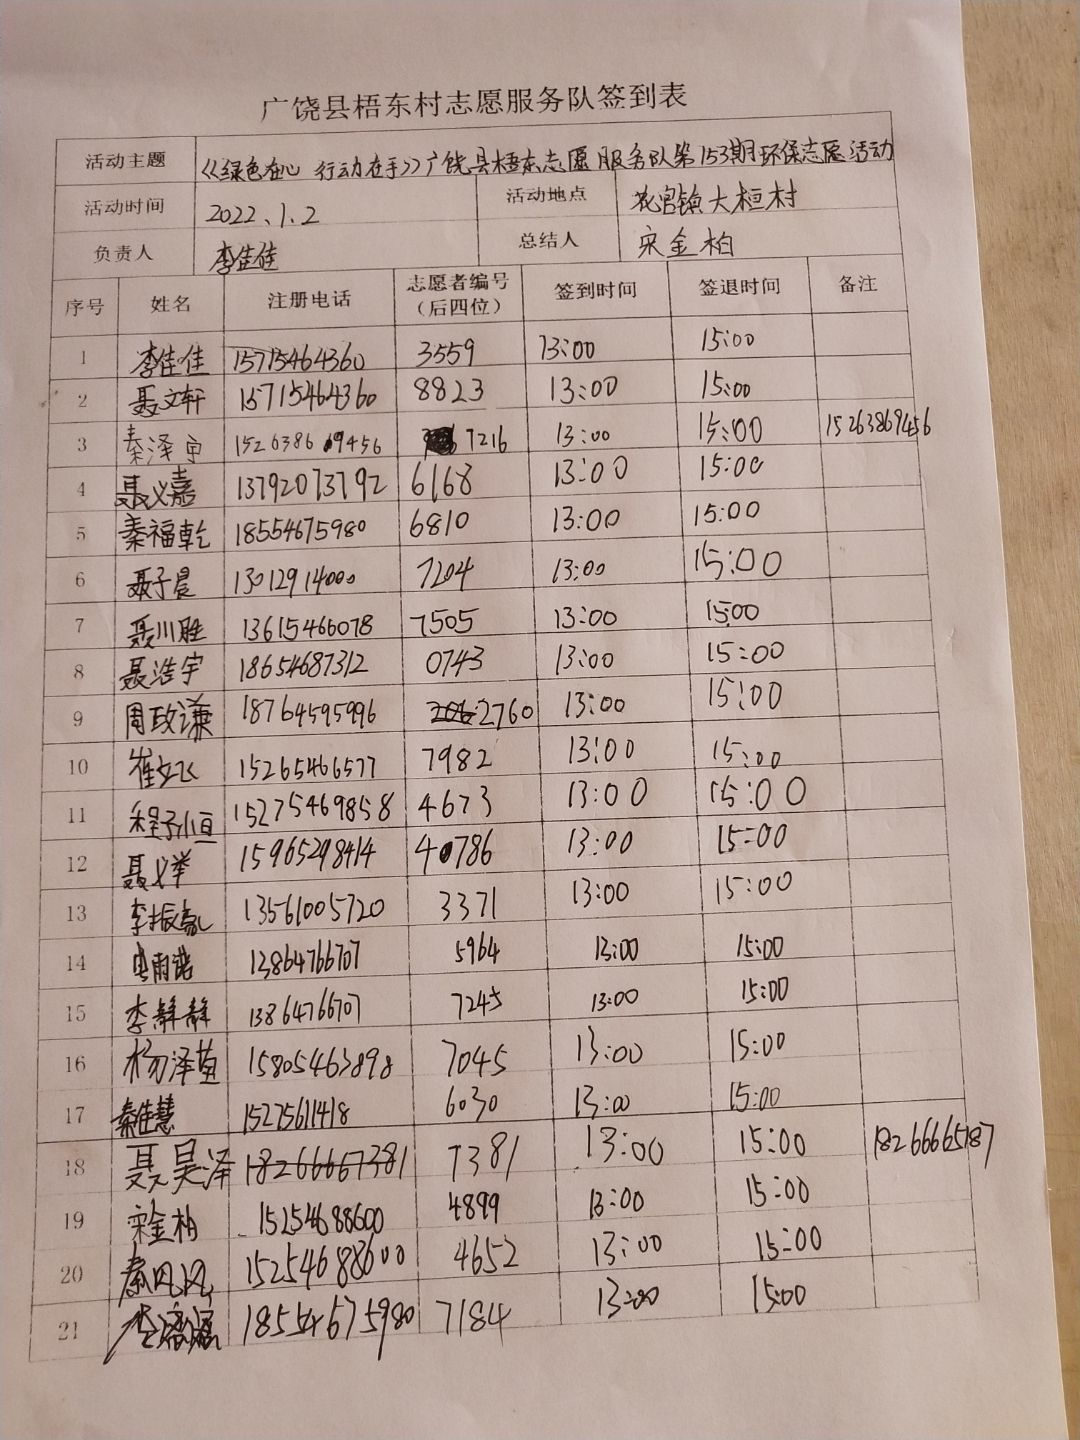 广饶县梧东村志愿服务队签到表
活动主题 《绿色在心 行动在手》广饶县梧东志愿服务队第153期环保志愿活动
活动时间 2022.1.2 活动地点 花官镇大桓村
负责人 李佳佳 总结人 宋金柏
序号 姓名 注册电话 志愿者编号（后四位） 签到时间 签退时间 备注
1 李佳佳 15715464360 3559 13:00 15:00
2 聂文轩 15715464360 8823 13:00 15:00
3 秦泽宇 15263869456 7216 13:00 15:00 15263869456
4 聂义嘉 13792073792 6168 13:00 15:00
5 秦福乾 18554675980 6810 13:00 15:00
6 聂子晨 13012914000 7204 13:00 15:00
7 聂川胜 13615466078 7505 13:00 15:00
8 聂浩宇 18654687312 0743 13:00 15:00
9 周政谦 18764595996 2760 13:00 15:00
10 崔文飞 15265466577 7982 13:00 15:00
11 程子恒 15275469858 4673 13:00 15:00
12 聂义举 15965298414 4786 13:00 15:00
13 李振 13561005720 3371 13:00 15:00
14 雨诺 13864766707 5964 13:00 15:00
15 李静静 13864766707 7245 13:00 15:00
16 杨泽苗 15805463898 7045 13:00 15:00
17 秦佳慧 15275611418 6030 13:00 15:00
18 聂昊泽 18266667381 7381 13:00 15:00 18266665187
19 宋金柏 15254688600 4899 13:00 15:00
20 秦风风 15254688600 4652 13:00 15:00
21 18554675980 7184 13:00 15:00